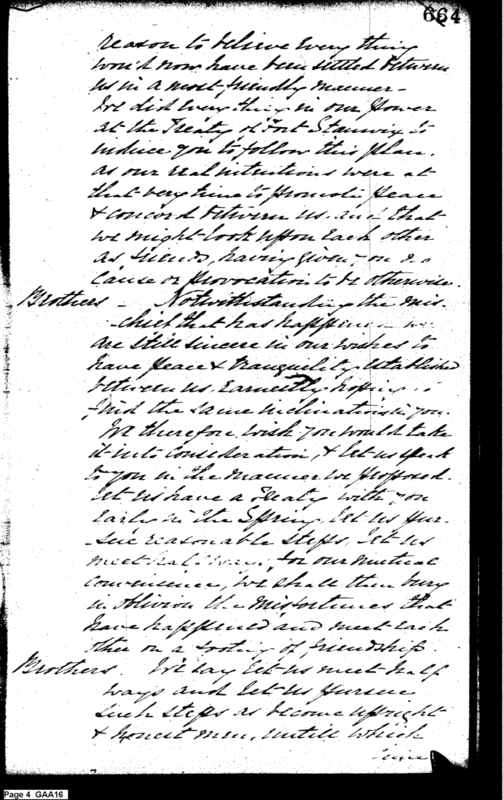 664
reason to believe every thing
would now have been settled between
us in a most friendly manner -
We did every thing in our power
at the Treaty of Fort Stanwix to
induce you to follow this plan,
as our real intentions were at
that very time to promote peace
& concord between us, and that
we might look upon each other
as friends, having given you no
Cause or provocation to be otherwise.
Brothers - Notwithstanding the mis-
-chief that has happened we
are still sincere in our wishes to
have peace & tranquility established
between us, earnestly hoping to
find the same inclination in you.
We therefore wish you would take
it into consideration, & let us speak
to you in the manner we proposed.
Let us have a Treaty with you
early in the Spring, let us pur-
-sue reasonable steps, let us
meet half ways, for our mutual
convenience, We shall then bury
in oblivion the misfortunes that
have happened and meet each
other on a footing of friendship.
Brothers We say let us meet half
ways and let us pursue
such steps as become upright
& honest men, untill which
time
Page 4 GAA16